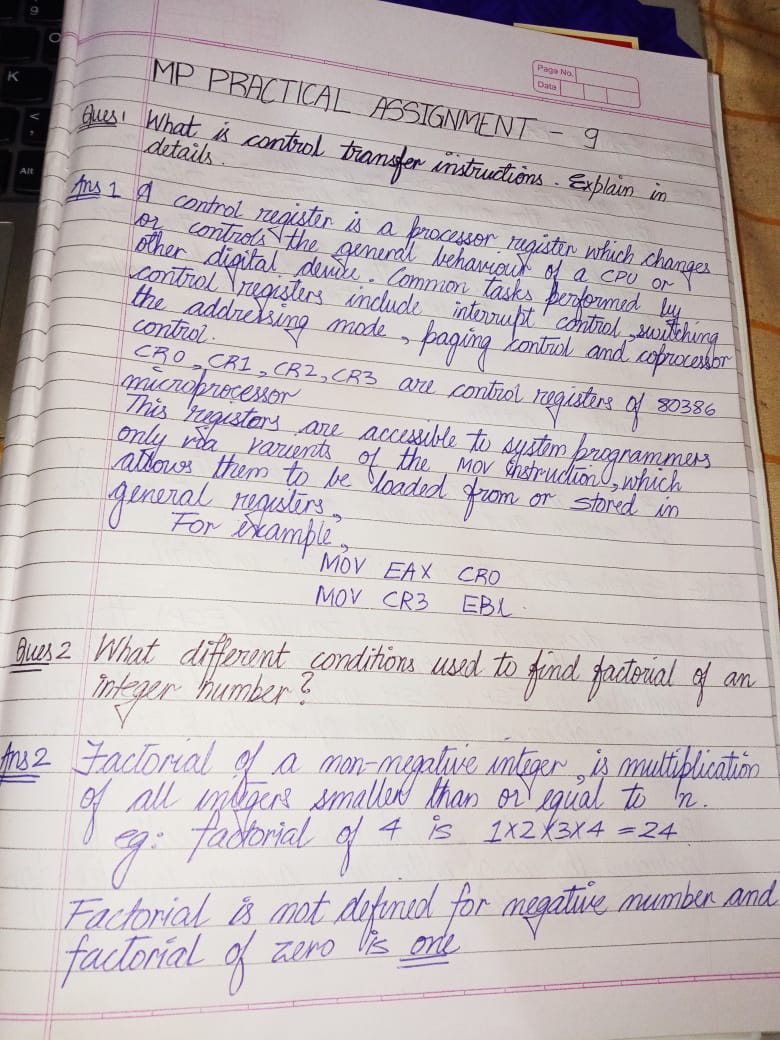 9
K
<
,
Alt
Page No.
Date
MP PRACTICAL ASSIGNMENT - 9
Ques1 What is control transfer instructions. Explain in
details.
Ans 1 A control register is a processor register which changes
or controls the general behaviour of a CPU or
other digital device. Common tasks performed by
control registers include interrupt control, switching
the addressing mode, paging control and coprocessor
control.
CR0, CR1, CR2, CR3 are control registers of 80386
microprocessor
This registors are accessible to system programmers
only via varients of the MOV instruction, which
allows them to be loaded from or stored in
general registers,
For example,
MOV EAX CR0
MOV CR3 EBX
Ques 2 What different conditions used to find factorial of an
integer number?
Ans 2 Factorial of a non-negative integer, is multiplication
of all integers smaller than or equal to n.
eg: factorial of 4 is 1x2x3x4 = 24
Factorial is not defined for negative number and
factorial of zero is one